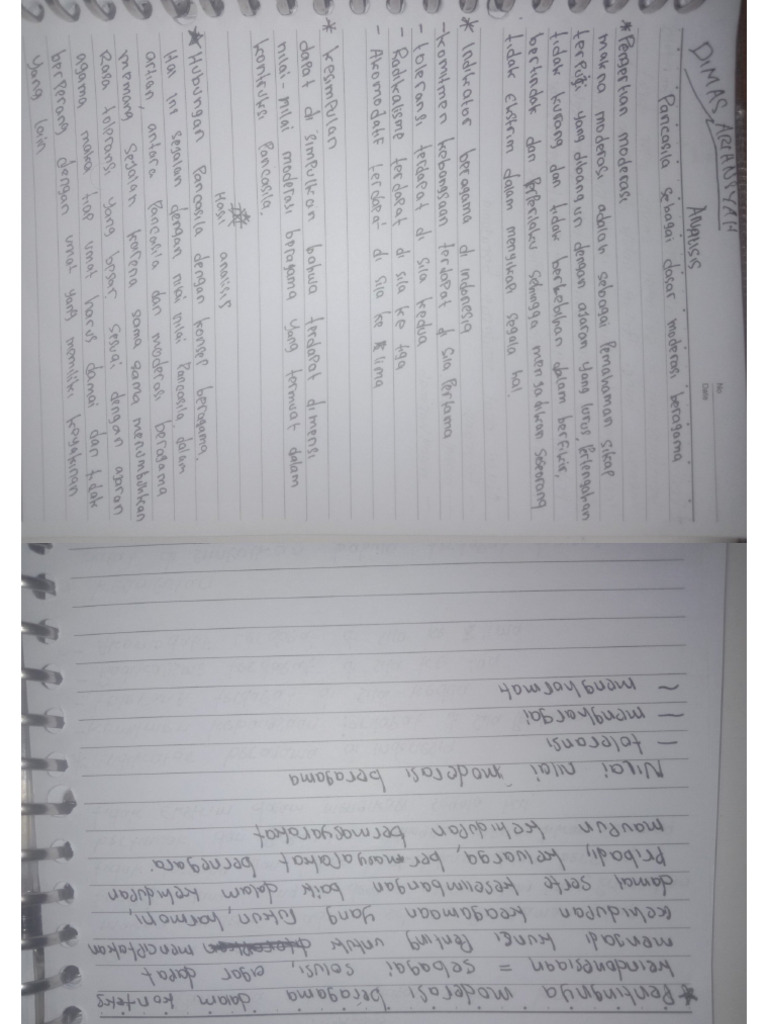 No
Date
DIMAS ARIANSYAH
Analisis
Pancasila sebagai dasar moderasi beragama
* Pengertian moderasi
makna moderasi adalah sebagai Pemahaman sikap
terpuji yang dibangun dengan ajaran yang lurus, Pertengahan
tidak kurang dan tidak berlebihan dalam berfikir,
bertindak dan Perperilaku sehingga menjadikan seseorang
tidak Ekstrim dalam mengikapi segala hal.
* Indikator beragama di indonesia
- komitmen kebangsaan terdapat di sila Pertama
- toleransi terdapat di sila kedua
- Radikalisme terdapat di sila ke tiga
- Akomodatif terdapat di sila ke lima
* kesimpulan
dapat di simpulkan bahwa terdapat dimensi
nilai-nilai moderasi beragama yang termuat dalam
kontruksi Pancasila.
Hasil analisis
* Hubungan Pancasila dengan konsep beragama.
Hal ini sejalan dengan nilai nilai Pancasila dalam
artian, antara Pancasila dan moderasi beragama
memang sejalan karena sama sama menumbuhkan
Rasa toleransi yang besar, sesuai dengan ajaran
agama maka tiap umat harus damai dan tidak
berperang dengan umat yang memiliki keyakinan
yang lain
* Pentingnya moderasi beragama dalam konteks
keindonesiaan = sebagai solusi, agar dapat
menjadi kunci Penting untuk menciptakan
kehidupan keagamaan yang rukun, harmoni,
damai serta keseimbangan baik dalam kehidupan
Pribadi, keluarga, bermasyarakat bernegara
maupun kehidupan bermasyarakat
Nilai nilai moderasi beragama
- toleransi
- menghargai
- menghormat